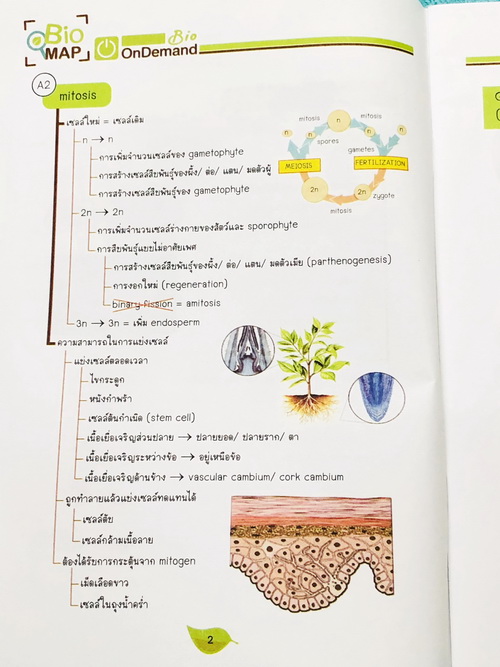 Bio
MAP
Bio
OnDemand
A2
mitosis
เซลล์ใหม่ = เซลล์เดิม
n → n
การเพิ่มจำนวนเซลล์ของ gametophyte
การสร้างเซลล์สืบพันธุ์ของผึ้ง/ ต่อ/ แตน/ มดตัวผู้
การสร้างเซลล์สืบพันธุ์ของ gametophyte
2n → 2n
การเพิ่มจำนวนเซลล์ร่างกายของสัตว์และ sporophyte
การสืบพันธุ์แบบไม่อาศัยเพศ
การสร้างเซลล์สืบพันธุ์ของผึ้ง/ ต่อ/ แตน/ มดตัวเมีย (parthenogenesis)
การงอกใหม่ (regeneration)
binary fission = amitosis
3n → 3n = เพิ่ม endosperm
mitosis
n
mitosis
n
n
n
n
spores
gametes
MEIOSIS
FERTILIZATION
2n
2n
zygote
mitosis
ความสามารถในการแบ่งเซลล์
แบ่งเซลล์ตลอดเวลา
ไขกระดูก
หนังกำพร้า
เซลล์ต้นกำเนิด (stem cell)
เนื้อเยื่อเจริญส่วนปลาย → ปลายยอด/ ปลายราก/ ตา
เนื้อเยื่อเจริญระหว่างข้อ → อยู่เหนือข้อ
เนื้อเยื่อเจริญด้านข้าง → vascular cambium/ cork cambium
ถูกทำลายแล้วแบ่งเซลล์ทดแทนได้
เซลล์ตับ
เซลล์กล้ามเนื้อลาย
ต้องได้รับการกระตุ้นจาก mitogen
เม็ดเลือดขาว
เซลล์ในถุงน้ำคร่ำ
2